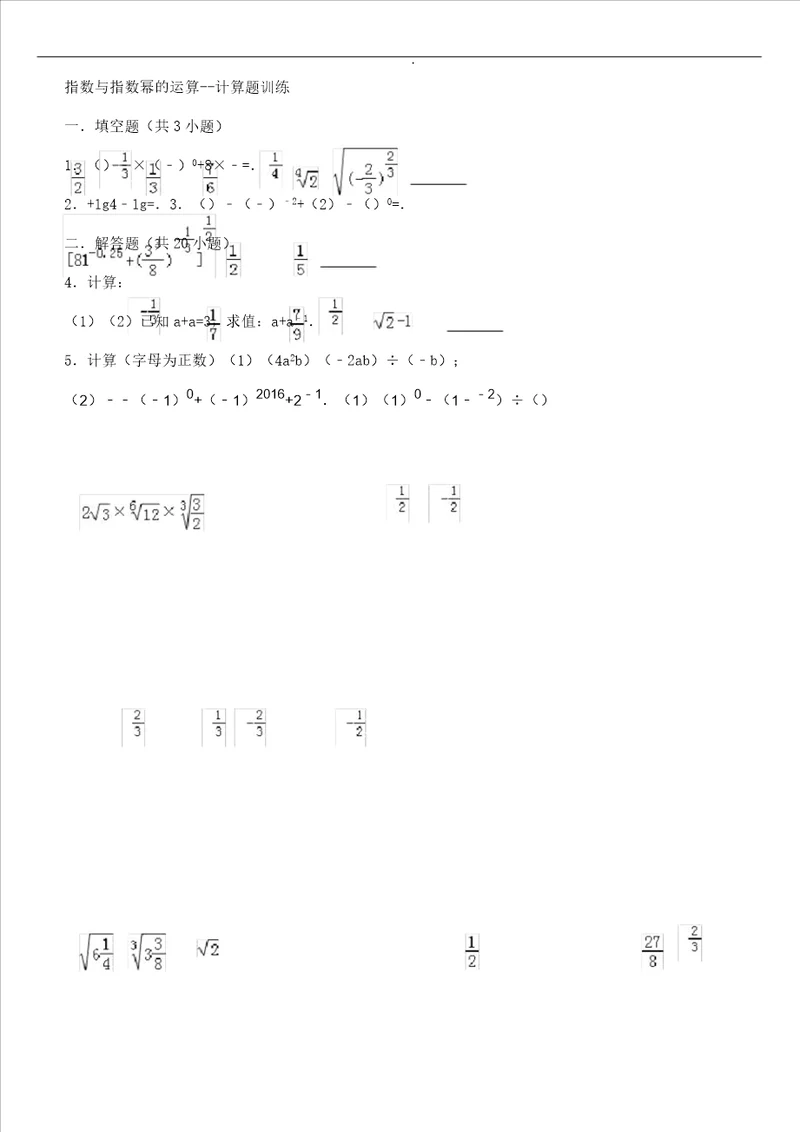 指数与指数幂的运算--计算题训练
一．填空题（共3小题）
1．（）×（﹣）⁰+8×﹣=． 3/2 -1/3 1/3 7/6 1/4 ⁴√2 √(-2/3)^(2/3)
2．+lg4﹣lg=．3．（）﹣（﹣）⁻²+（2）﹣（）⁰=．
二．解答题（共20小题）
[81^(-0.25)+(3 3/8)^(1/3)]^(1/2) 1/2 1/5
4．计算：
（1）（2）已知a+a=3，求值：a+a⁻¹． 1/7 7/9 1/2 √2-1
5．计算（字母为正数）（1）（4a²b）（﹣2ab）÷（﹣b）；
（2）﹣﹣（﹣1）⁰+（﹣1）²⁰¹⁶+2⁻¹．（1）（1）⁰﹣（1﹣⁻²）÷（）
2√3×⁶√12×³√3/2 1/2 -1/2
2/3 1/3 -2/3 -1/2
√6 1/4 ³√3 3/8 √2 1/2 27/8 2/3